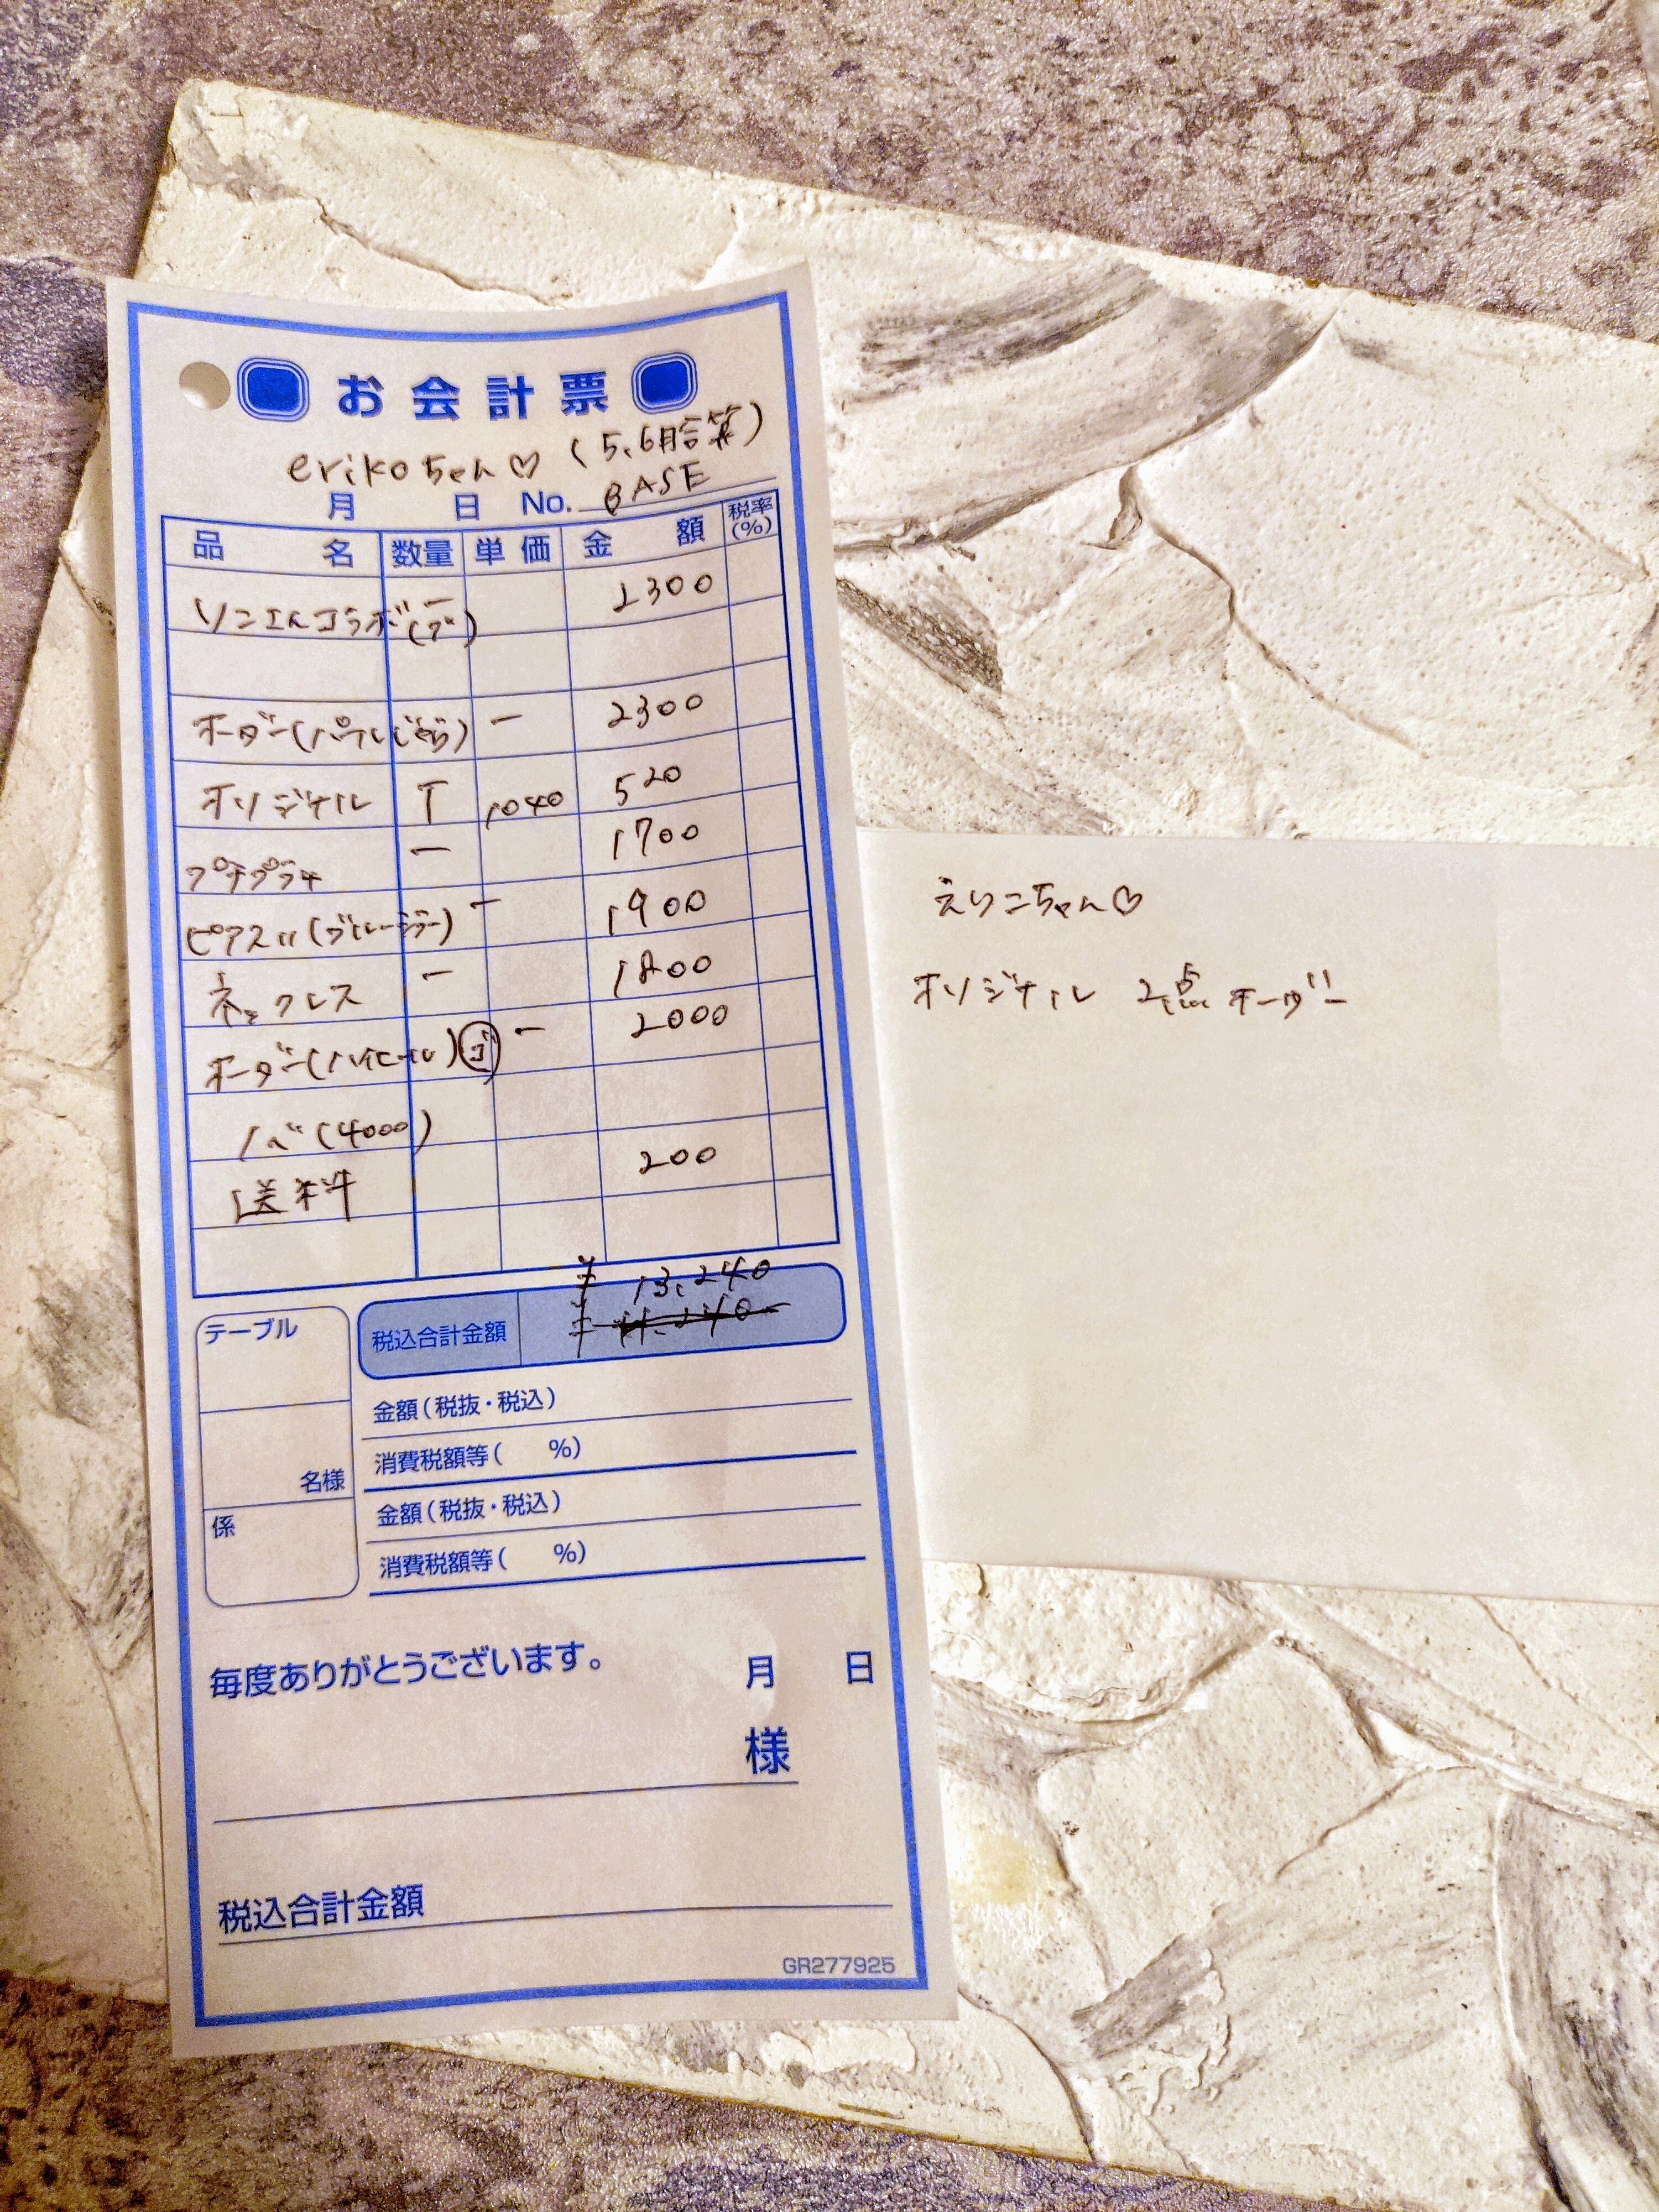 お会計票
erikoちゃん♡ (5、6月合算)
月 日 No. BASE
品名 数量 単価 金額 税率(%)
ソニエんコラボ(ブ) ー 2300
オーダー(パールじゃら) ー 2300
オリジナル T 1040 520
プチプラ ー 1700
ピアス (ブルージラー) ー 1900
ネックレス ー 1800
オーダー(ハイヒール) ゴ ー 2000
ノベ(4000)
送料 200
¥ 13,240
税込合計金額 ¥ 11,240
テーブル
名様
係
金額(税抜・税込)
消費税額等( %)
金額(税抜・税込)
消費税額等( %)
毎度ありがとうございます。 月 日
様
税込合計金額
GR277925
えりこちゃん♡
オリジナル 2点オーダー